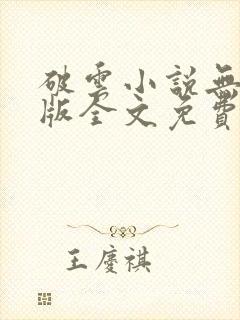 破雲小說無
版全文免費
王慶祺